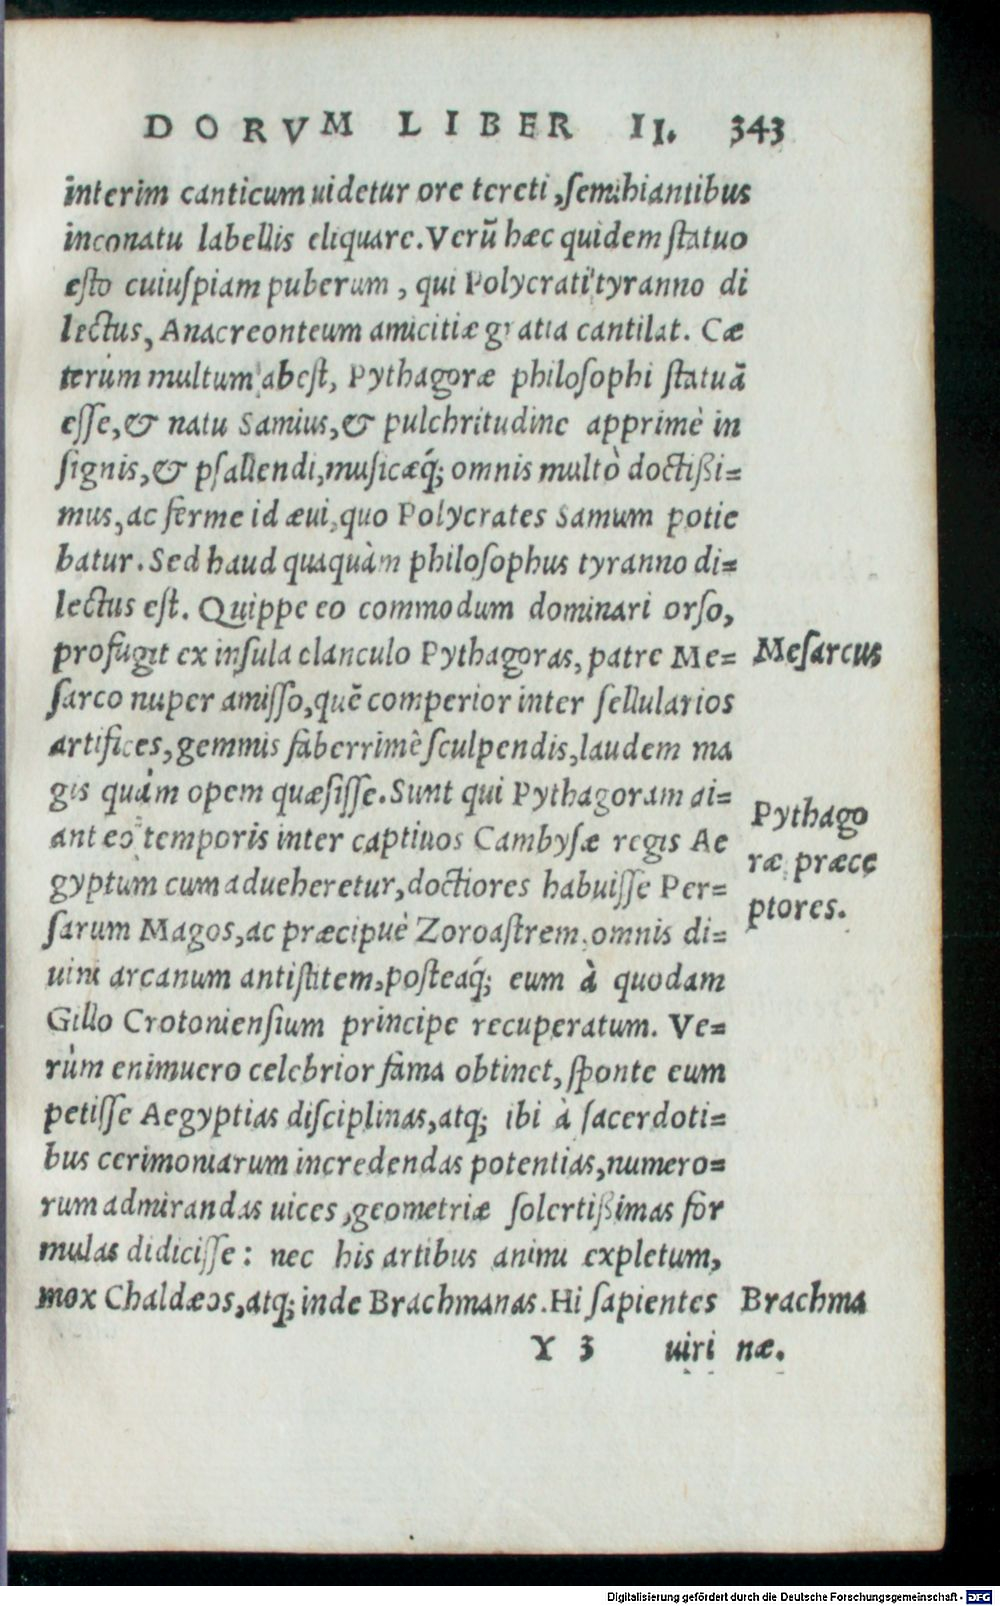 DORVM LIBER II. 343
interim canticum uidetur ore tereti, semihiantibus
inconatu labellis eliquare. Verũ hæc quidem statuo
esto cuiuspiam puberum, qui Polycrati tyranno di
lectus, Anacreonteum amicitiæ gratia cantilat. Cæ
terùm multum abest, Pythagoræ philosophi statuã
esse, & natu Samius, & pulchritudine apprimè in
signis, & psallendi, musicæq́; omnis multò doctißi=
mus, ac ferme id æui, quo Polycrates Samum potie
batur. Sed haud quaquàm philosophus tyranno di=
lectus est. Quippe eo commodum dominari orso,
profugit ex insula clanculo Pythagoras, patre Me=
sarco nuper amisso, quẽ comperior inter sellularios
artifices, gemmis faberrimè sculpendis, laudem ma
gis quàm opem quæsisse. Sunt qui Pythagoram ai=
ant eo temporis inter captiuos Cambysæ regis Ae
gyptum cum adueheretur, doctiores habuisse Per=
sarum Magos, ac præcipuè Zoroastrem, omnis di=
uini arcanum antistitem, posteaq́; eum à quodam
Gillo Crotoniensium principe recuperatum. Ve=
rùm enimuero celebrior fama obtinet, sponte eum
petisse Aegyptias disciplinas, atq; ibi à sacerdoti=
bus cerimoniarum incredendas potentias, numero=
rum admirandas uices, geometriæ solertißimas for
mulas didicisse: nec his artibus animi expletum,
mox Chaldæos, atq; inde Brachmanas. Hi sapientes
Y 3 uiri
Mesarcus
Pythago
ræ præce
ptores.
Brachma
næ.
Digitalisierung gefördert durch die Deutsche Forschungsgemeinschaft - DFG